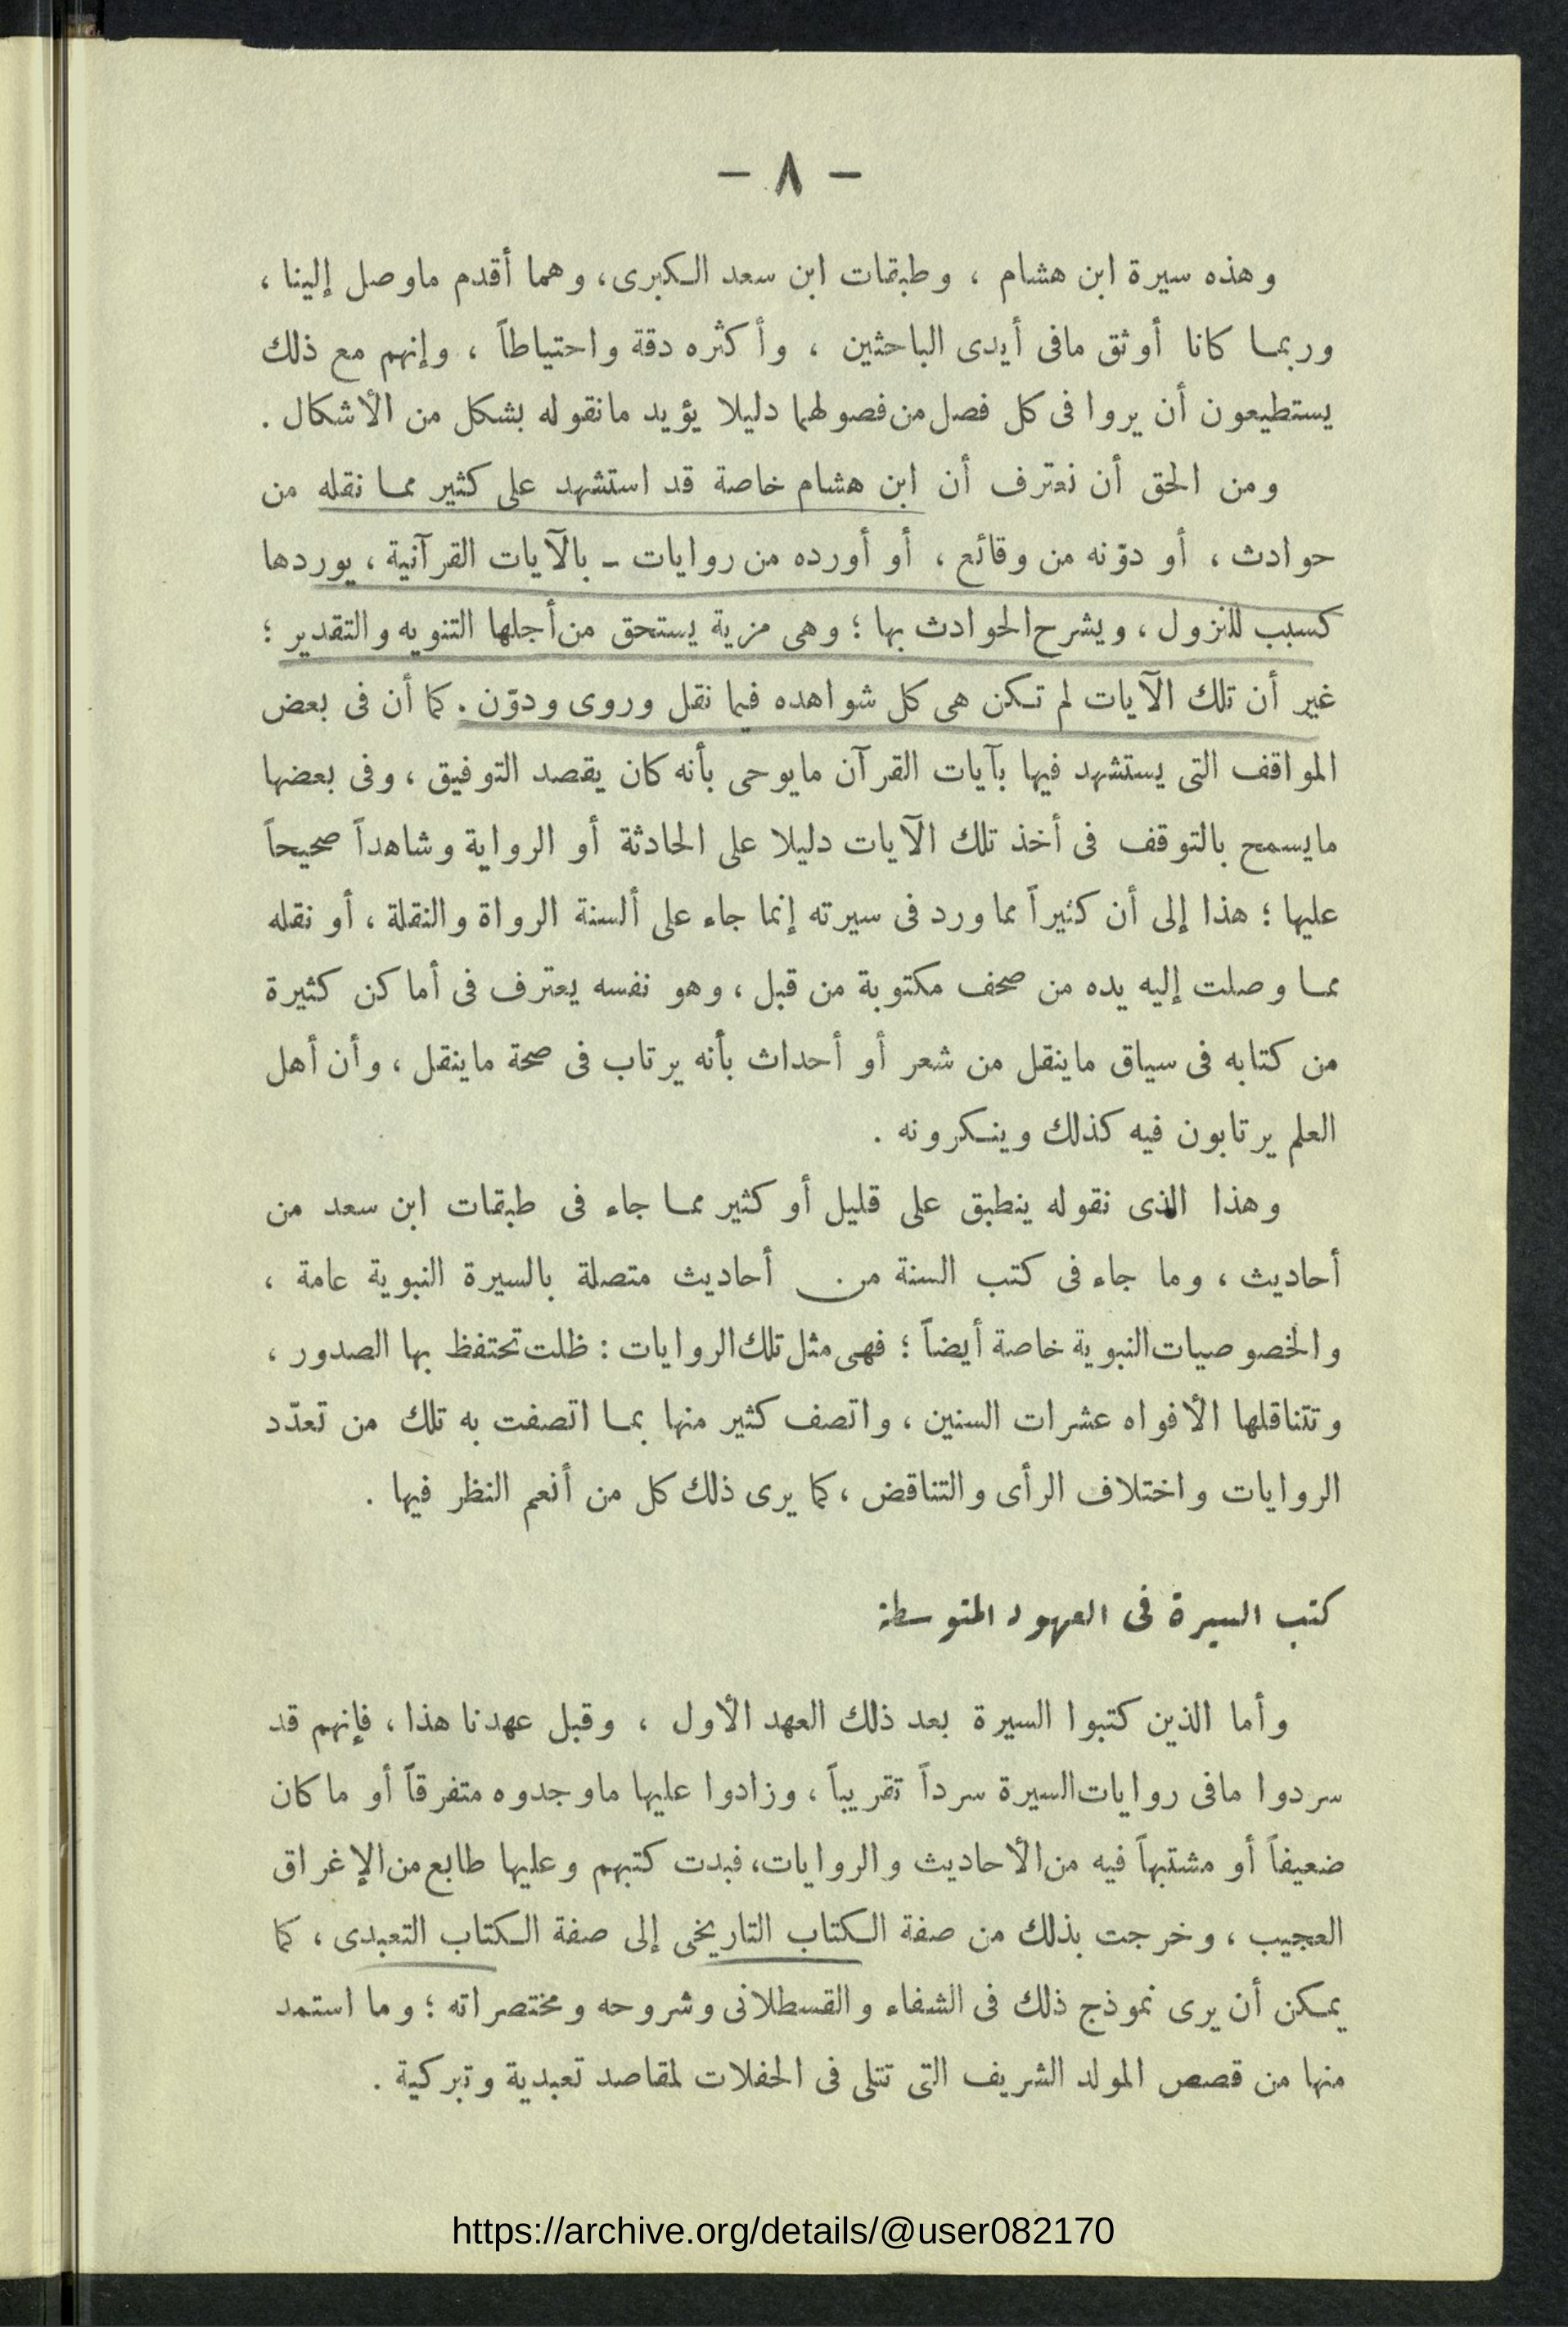 — ٨ —
وهذه سيرة ابن هشام ، وطبقات ابن سعد الكبرى، وهما أقدم ماوصل إلينا ،
وربما كانا أوثق مافى أيدى الباحثين ، وأكثره دقة واحتياطاً ، وإنهم مع ذلك
يستطيعون أن يروا فى كل فصل من فصولهما دليلا يؤيد مانقوله بشكل من الأشكال .
ومن الحق أن نعترف أن ابن هشام خاصة قد استشهد على كثير مما نقله من
حوادث ، أو دوّنه من وقائع ، أو أورده من روايات ـ بالآيات القرآنية ، يوردها
كسبب للنزول ، ويشرح الحوادث بها ؛ وهى مزية يستحق من أجلها التنويه والتقدير ؛
غير أن تلك الآيات لم تكن هى كل شواهده فيما نقل وروى ودوّن . كما أن فى بعض
المواقف التى يستشهد فيها بآيات القرآن مايوحى بأنه كان يقصد التوفيق ، وفى بعضها
مايسمح بالتوقف فى أخذ تلك الآيات دليلا على الحادثة أو الرواية وشاهداً صحيحاً
عليها ؛ هذا إلى أن كثيراً مما ورد فى سيرته إنما جاء على ألسنة الرواة والنقلة ، أو نقله
مما وصلت إليه يده من صحف مكتوبة من قبل ، وهو نفسه يعترف فى أماكن كثيرة
من كتابه فى سياق ماينقل من شعر أو أحداث بأنه يرتاب فى صحة ماينقل ، وأن أهل
العلم يرتابون فيه كذلك وينكرونه .
وهذا الذى نقوله ينطبق على قليل أو كثير مما جاء فى طبقات ابن سعد من
أحاديث ، وما جاء فى كتب السنة من أحاديث متصلة بالسيرة النبوية عامة ،
والخصوصيات النبوية خاصة أيضاً ؛ فهى مثل تلك الروايات : ظلت تحتفظ بها الصدور ،
وتتناقلها الأفواه عشرات السنين ، واتصف كثير منها بما اتصفت به تلك من تعدّد
الروايات واختلاف الرأى والتناقض ، كما يرى ذلك كل من أنعم النظر فيها .
كتب السيرة فى العهود المتوسطة
وأما الذين كتبوا السيرة بعد ذلك العهد الأول ، وقبل عهدنا هذا ، فإنهم قد
سردوا مافى روايات السيرة سرداً تقريباً ، وزادوا عليها ماوجدوه متفرقاً أو ماكان
ضعيفاً أو مشتبهاً فيه من الأحاديث والروايات، فبدت كتبهم وعليها طابع من الإغراق
العجيب ، وخرجت بذلك من صفة الكتاب التاريخى إلى صفة الكتاب التعبدى ، كما
يمكن أن يرى نموذج ذلك فى الشفاء والقسطلانى وشروحه ومختصراته ؛ وما استمد
منها من قصص المولد الشريف التى تتلى فى الحفلات لمقاصد تعبدية وتبركية .
https://archive.org/details/@user082170